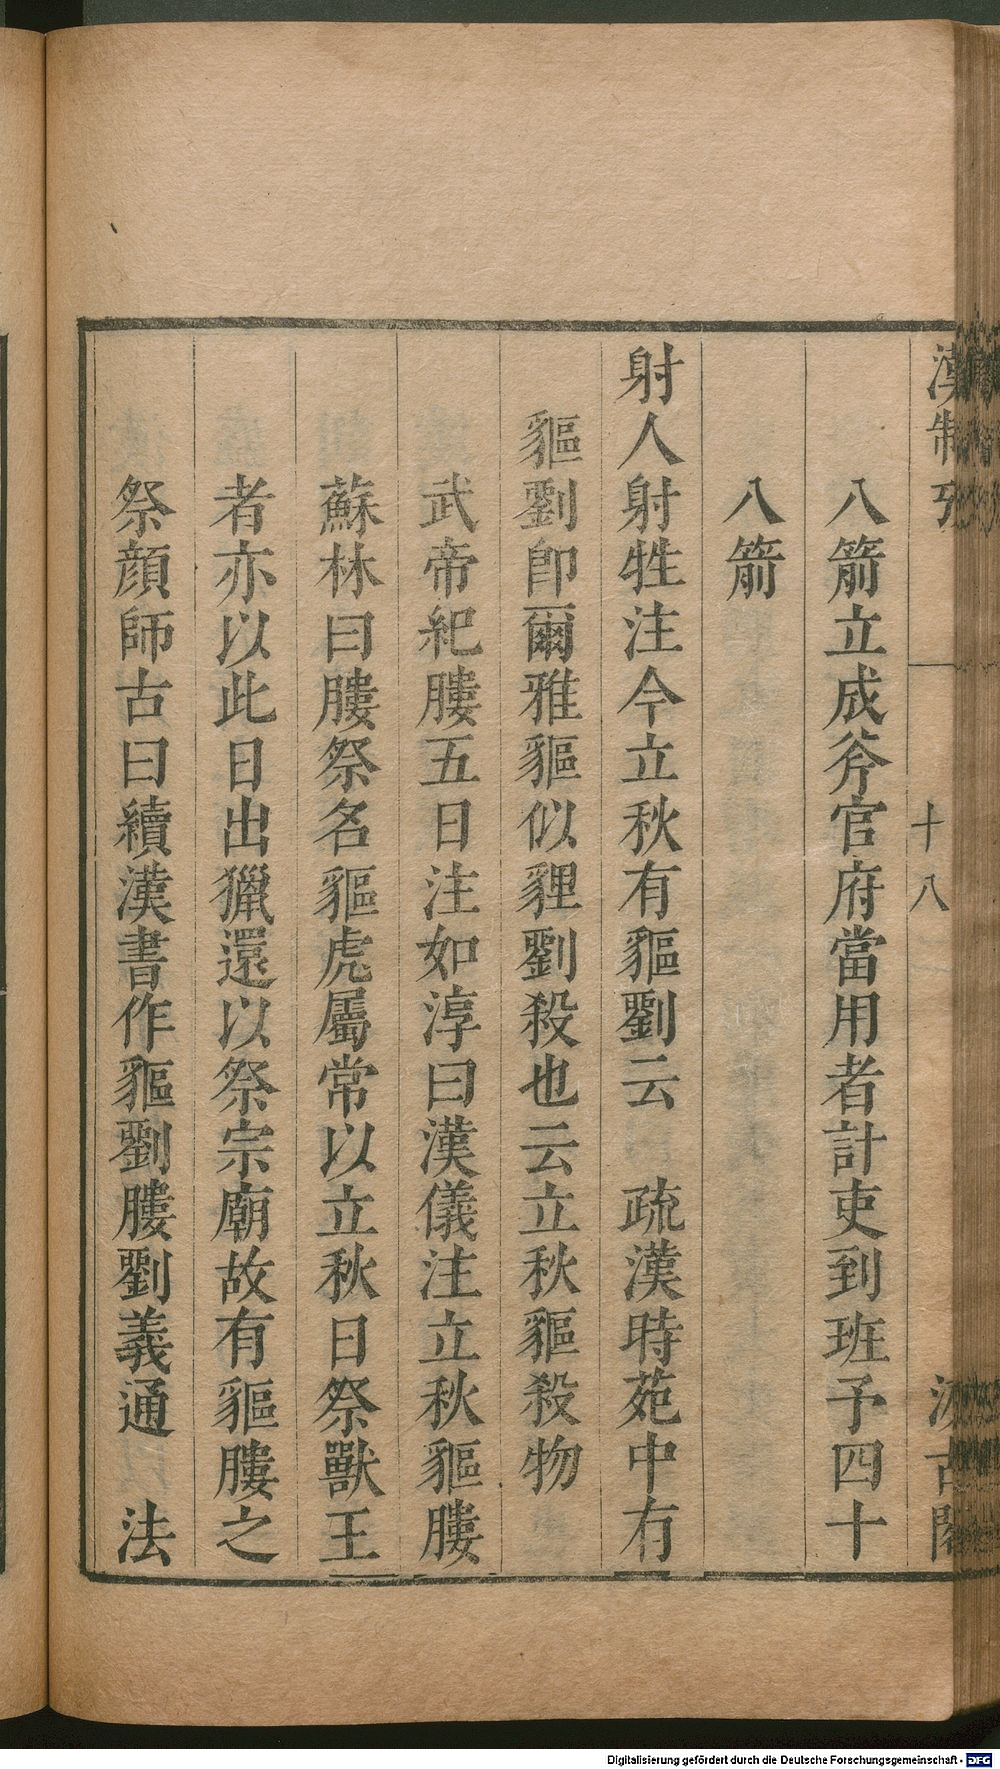 漢制攷
十八
汲古閣
八箭立成斧官府當用者計吏到班予四十
八箭
射人射牲注今立秋有貙劉云 疏漢時苑中有
貙劉卽爾雅貙似貍劉殺也云立秋貙殺物
武帝紀膢五日注如淳曰漢儀注立秋貙膢
蘇林曰膢祭名貙虎屬常以立秋日祭獸王
者亦以此日出獵還以祭宗廟故有貙膢之
祭顏師古曰續漢書作貙劉膢劉義通 法
Digitalisierung gefördert durch die Deutsche Forschungsgemeinschaft - DFG